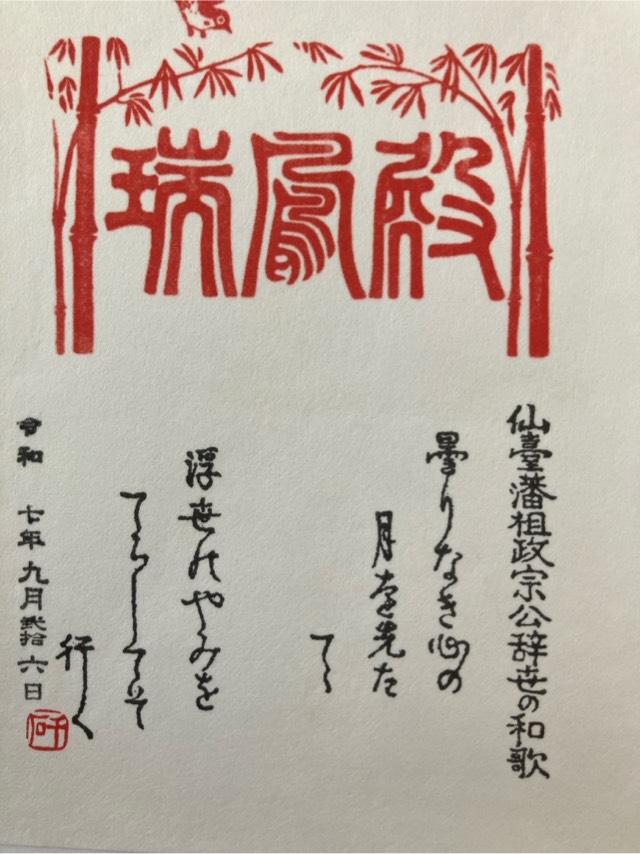 瑞鳳殿
仙臺藩祖政宗公辞世の和歌
曇りなき心の
月を先た
てゝ
浮世のやみを
てらしてそ
行く
令和 七年 九月 弐拾六日